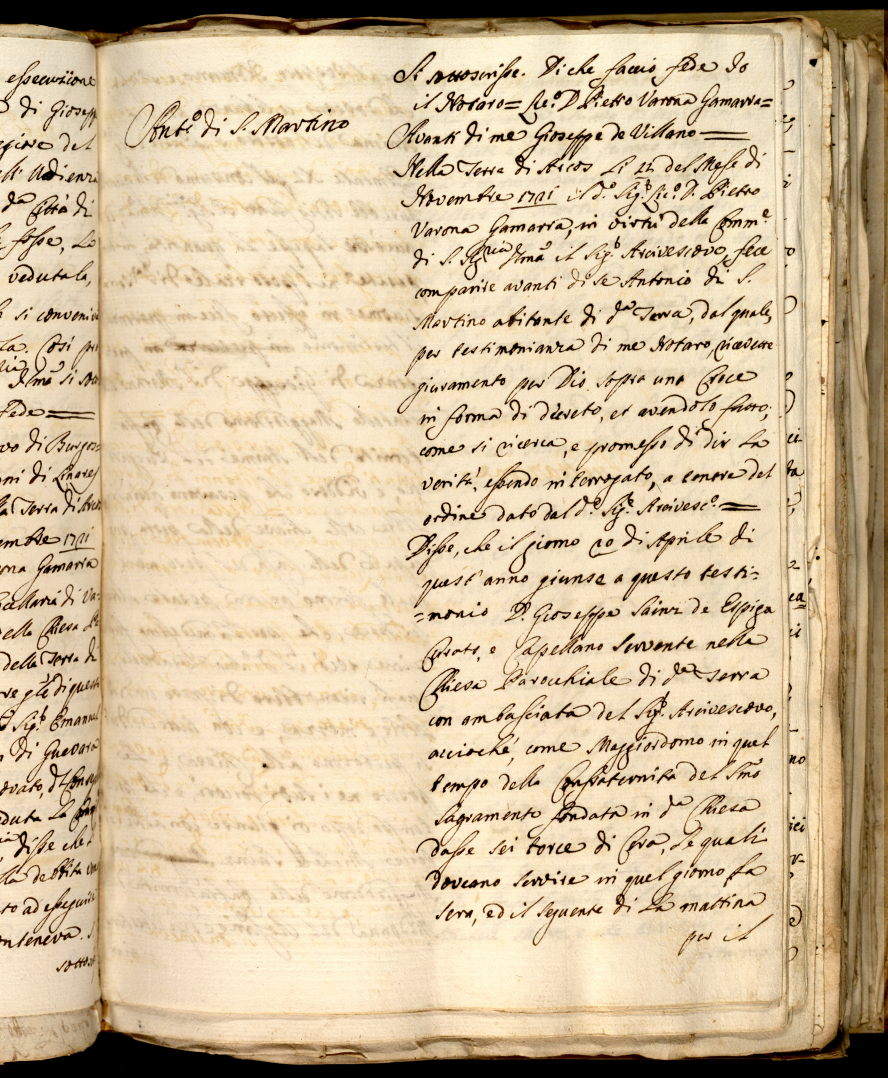 essecuzione
di Giosepp
egiore del
Udienza
dª Città di
fosse, Lo
veduta la,
si conveni
Così pr
Illmª si
fede =
vo di Burgos=
ni di Linares
la Terra di Arco
embre 1721
ona Gamarra
Cancellaria di Va=
della Chiesa
della Terra di
Sigr Emanuel
di Guevara
duta La
disse che
lla debbita
to ad esseguirsi
nteneva. S
sotto
Antº di S. Martino
Si sottoscrisse. Di che faccio fede Io
il Notaro= Licº. D. Pietro Varona Gamarra=
Avanti di me Gioseppe de Villano=
Nella Terra di Arcos Li 22 del Mese di
Novembre 1721 il dº. Sigr. Licº. D. Pietro
Varona Gamarra, in virtù della Comme.
di S. Sigria Illmª il Sigr. Arcivescovo, fece
comparire avanti di se Antonio di S.
Martino abitante di dª Terra, dal quale,
per testimonianza di me Notaro, ricevette
giuramento per Dio, sopra una Croce
in forma di diretto, et avendolo fatto,
come si ricerca, e promesso di dir La
verità, essendo interrogato, a tenore del
ordine dato dal dº. Sigr. Arcivescº. =
Disse, che il giorno 20 di Aprile di
quest'anno giunse a questo testi=
=monio D. Gioseppe Sainz de Espiga
Curato, e Capellano Servente nella
Chiesa Parochiale di dª Terra
con ambasciata del Sigr. Arcivescovo,
accioché, come Maggiordomo in quel
tempo della Confraternita del Smo
Sagramento fondata in dª Chiesa
dasse sei torce di Cera, Le quali
doveano servire in quel giorno La
sera, ed il seguente di La mattina
per il